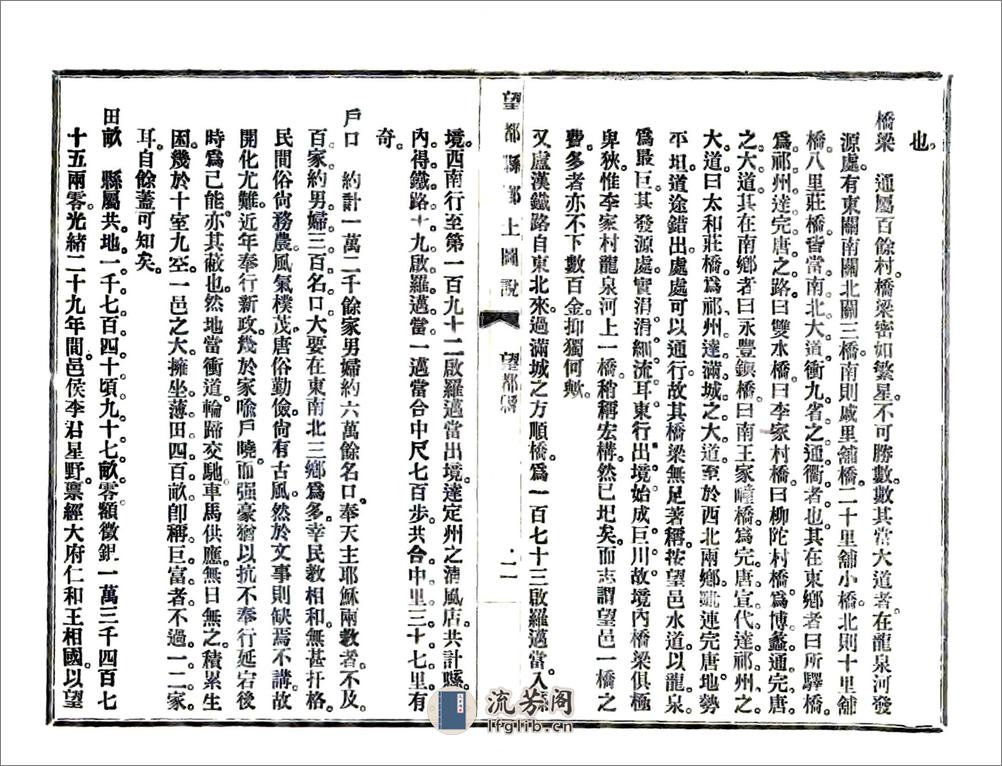 也。
橋梁　通屬百餘村。橋梁密如繁星。不可勝數。數其當大道者。在龍泉河發
源處。有東關南關北關三橋。南則戚里舖橋。二十里舖小橋。北則十里舖
橋。八里莊橋。皆當南北大道。衝九省之通衢者也。其在東鄉者。曰所驛橋。
爲祁州達完唐之路。曰雙水橋。曰李家村橋。曰柳陀村橋。爲博蠡通完唐
之大道。其在南鄉者。曰永豐鎮橋。曰南王家疃橋。爲完唐宣代達祁州之
大道。曰太和莊橋。爲祁州達滿城之大道。至於西北兩鄉。毗連完唐。地勢
平坦。道途錯出。處處可以通行。故其橋梁無足著稱。按望邑水道。以龍泉
爲最巨。其發源處。實涓涓細流耳。東行出境。始成巨川。故境內橋梁。俱極
卑狹。惟李家村龍泉河上一橋。稍稱宏構。然已圮矣。而志謂望邑一橋之
費。多者亦不下數百金。抑獨何歟。
又盧漢鐵路。自東北來。過滿城之方順橋。爲一百七十三啟羅邁當。入縣
望都縣鄉土圖說
望都縣
二
境。西南行至第一百九十二啟羅邁當出境。達定州之清風店。共計縣
內得鐵路十九啟羅邁當。一邁當合中尺七百步。共合中里三十七里有
奇。
戶口　約計一萬二千餘家。男婦約六萬餘名口。奉天主耶穌兩教者。不及
百家。約男婦三百名口。大要在東南北三鄉爲多。幸民教相和。無甚扞格。
民間俗尙務農。風氣樸茂。唐俗勤儉。尙有古風。然於文事則缺焉不講。故
開化尤難。近年奉行新政。幾於家喻戶曉。而强豪猶以抗不奉行延宕後
時爲己能。亦其蔽也。然地當衝道。輪蹄交馳。車馬供應。無日無之。積累生
困。幾於十室九空。一邑之大。擁坐薄田四百畝。卽稱巨富者。不過一二家
耳。自餘蓋可知矣。
田畝　縣屬共地一千七百四十頃九十七畝零。額徵銀一萬三千四百七
十五兩零。光緒二十九年間。邑侯李君星野。禀經大府仁和王相國。以望
流芳阁
lfglib.cn